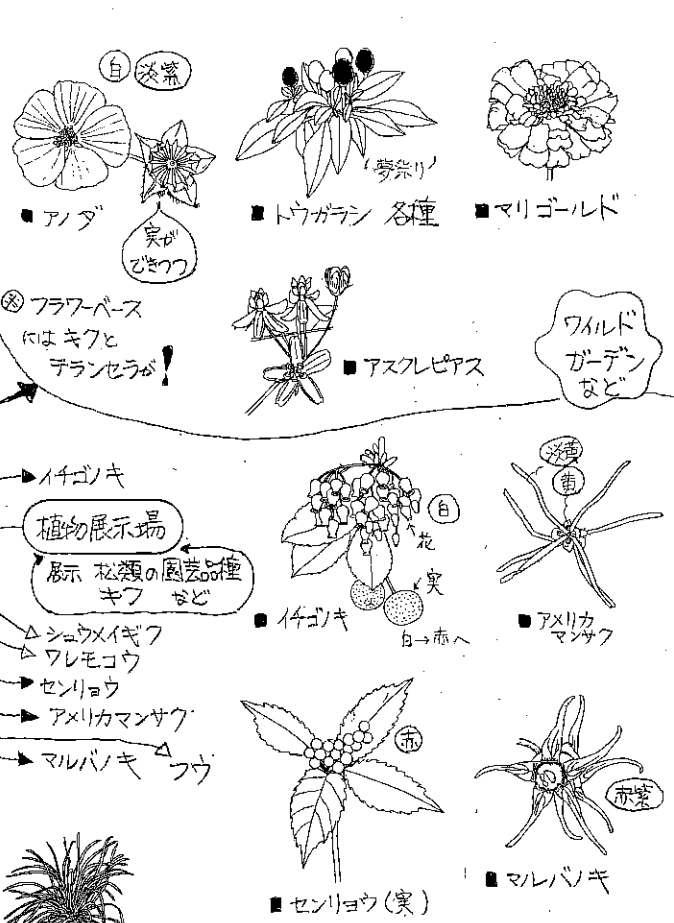 白 淡紫
「夢祭り」
■アノダ
■トウガラシ 各種
■マリゴールド
実が
できつつ
※フラワーベース
にはキクと
テランセラが!
■アスクレピアス
ワイルド
ガーデン
など
イチゴノキ
植物展示場
展示 松類の園芸品種
キク など
シュウメイギク
ワレモコウ
センリョウ
アメリカマンサク
マルバノキ
フウ
白
花
実
■イチゴノキ
白→赤へ
淡黄
黄
■アメリカ
マンサク
赤
■センリョウ(実)
赤紫
■マルバノキ